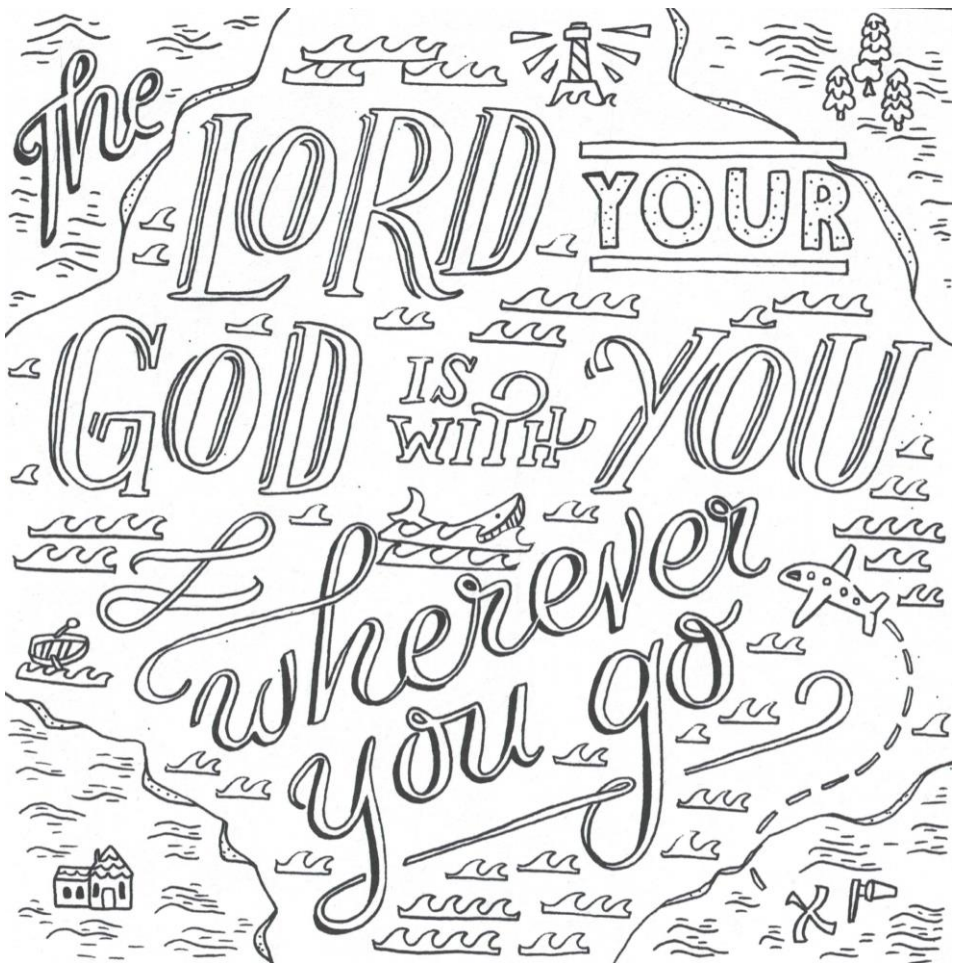 the LORD YOUR
GOD IS WITH YOU
wherever
you go